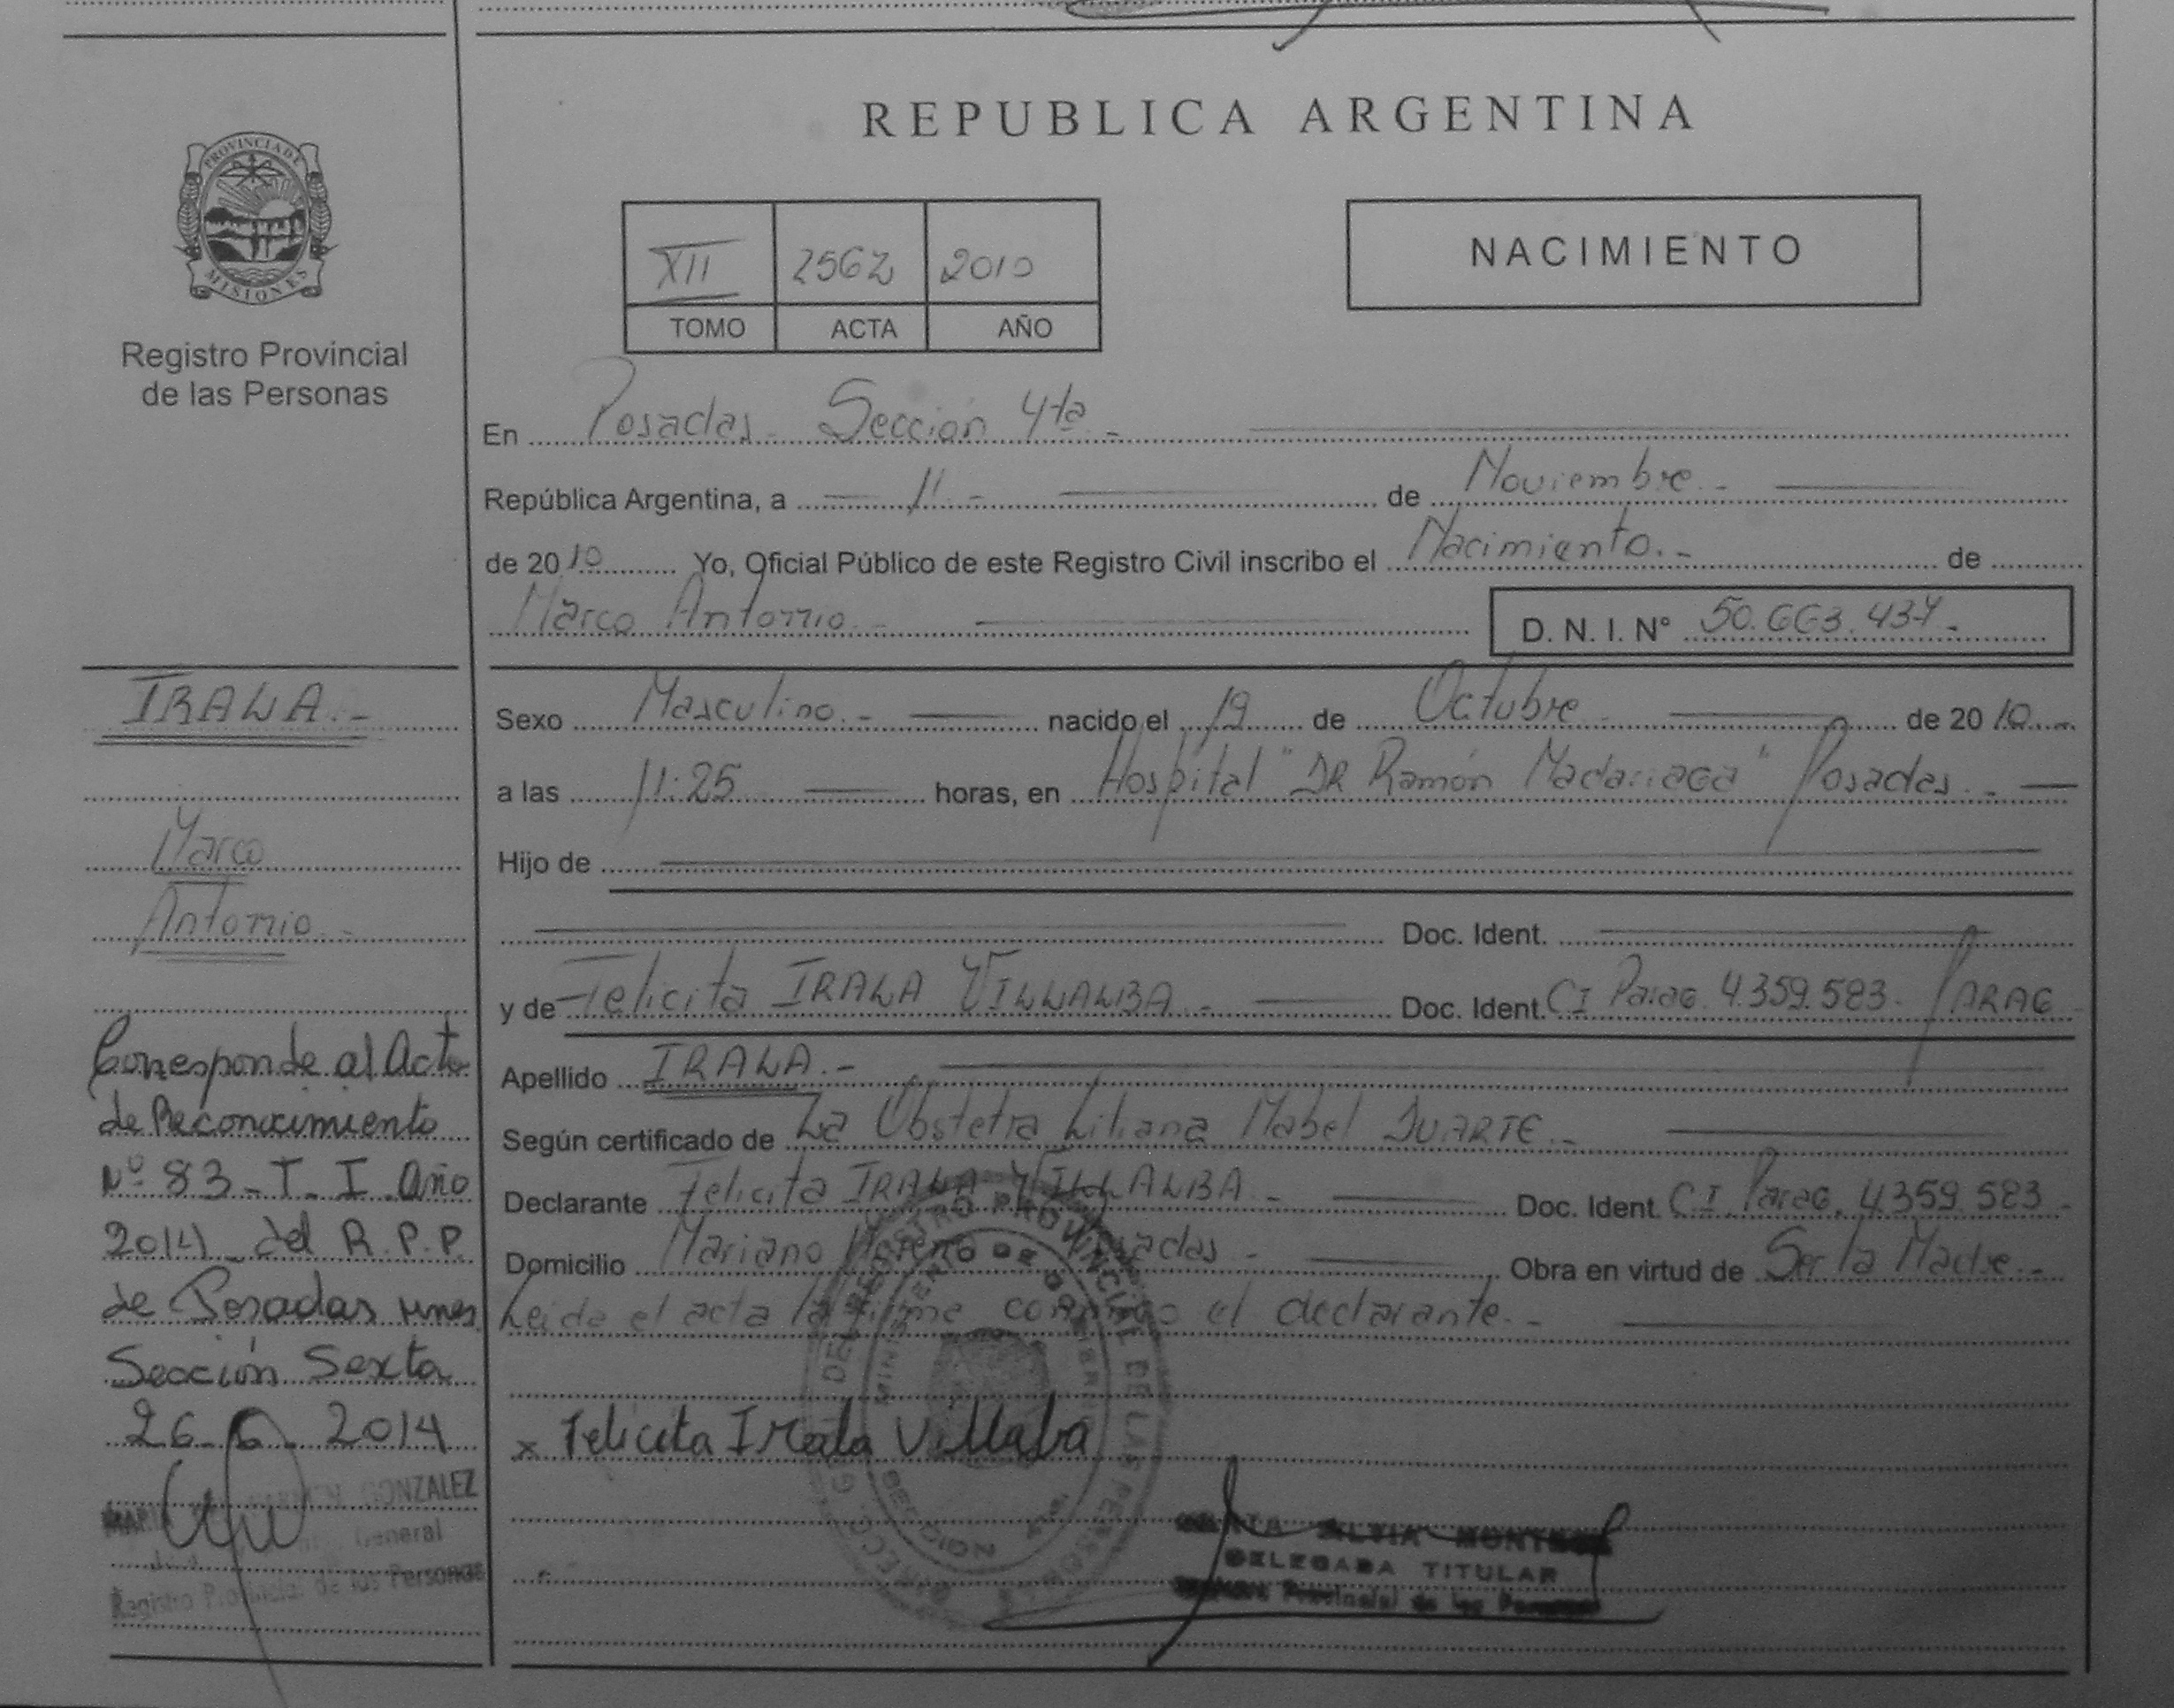 REPUBLICA ARGENTINA
PROVINCIA DE
MISIONES
Registro Provincial
de las Personas
XII 2562 2010
TOMO ACTA AÑO
NACIMIENTO
En Posadas - Sección 4ta -
República Argentina, a 11 - de Noviembre -
de 2010 Yo, Oficial Público de este Registro Civil inscribo el Nacimiento.- de
Marco Antonio -
D. N. I. N° 50.663.437-
IRALA.-
Marco
Antonio.-
Sexo Masculino - nacido el 19 de Octubre de 2010 -
a las 11:25 horas, en Hospital "DR Ramón Madariaga" Posadas. -
Hijo de
Doc. Ident.
y de Felicita IRALA VILLALBA.- Doc. Ident. CI Parag 4.359.583- PARAG
Apellido IRALA.-
Según certificado de La Obstetra Liliana Mabel DUARTE.-
Declarante Felicita IRALA VILLALBA - Doc. Ident. C.I. Parag. 4.359.583 -
Domicilio Mariano Moreno Posadas - Obra en virtud de Ser la Madre.-
Leida el acta la firma conmigo el declarante.-
Corresponde al Acta
de Reconocimiento
Nº 83 - T. I Año
2014 del R.P.P.
de Posadas Mnes
Sección Sexta
26-6-2014
x Felicita Irala Villalba
GONZALEZ
General
Registro Provincial de las Personas
DELEGADA TITULAR
Provincial de las Personas
REGISTRO PROVINCIAL DE LAS PERSONAS
MINISTERIO DE GOBIERNO